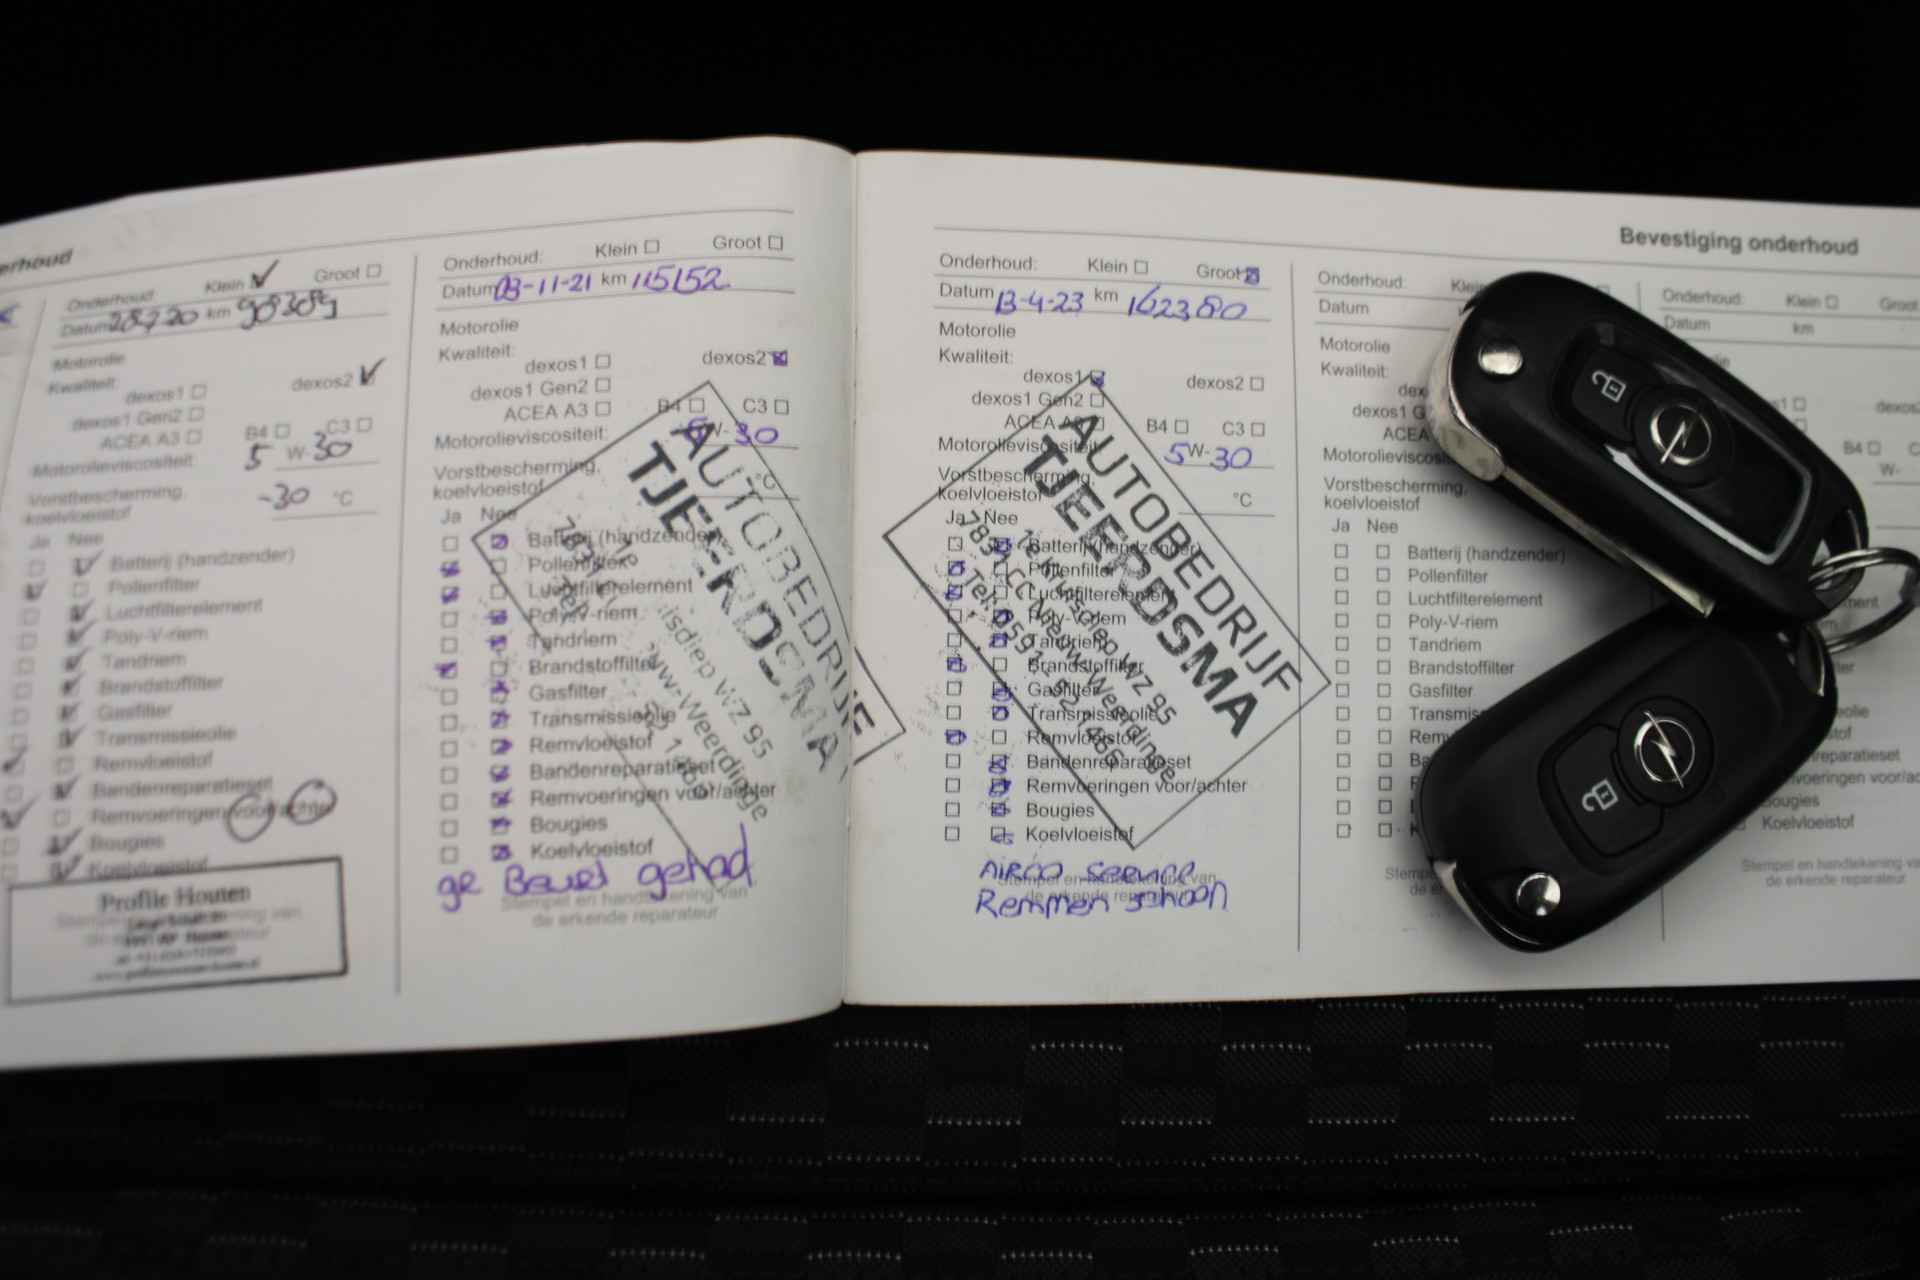 erhoud
Onderhoud: Klein Groot
Datum km 98389
Motorolie
Kwaliteit:
dexos1 dexos2
dexos1 Gen2
ACEA A3 B4 C3
Motorolieviscositeit: 5 W-30
Vorstbescherming,
koelvloeistof -30 °C
Ja Nee
Batterij (handzender)
Pollenfilter
Luchtfilterelement
Poly-V-riem
Tandriem
Brandstoffilter
Gasfilter
Transmissieolie
Remvloeistof
Bandenreparatieset
Remvoeringen voor/achter
Bougies
Koelvloeistof
Profile Houten
Onderhoud: Klein Groot
Datum 03-11-21 km 115152
Motorolie
Kwaliteit:
dexos1 dexos2
dexos1 Gen2
ACEA A3 B4 C3
Motorolieviscositeit: 5 W-30
Vorstbescherming,
koelvloeistof °C
Ja Nee
Batterij (handzender)
Pollenfilter
Luchtfilterelement
Poly-V-riem
Tandriem
Brandstoffilter
Gasfilter
Transmissieolie
Remvloeistof
Bandenreparatieset
Remvoeringen voor/achter
Bougies
Koelvloeistof
gr Beurt gehad
Stempel en handtekening van
de erkende reparateur
AUTOBEDRIJF
TJEERDSMA
WZ 95
Bevestiging onderhoud
Onderhoud: Klein Groot
Datum 13-4-23 km 162380
Motorolie
Kwaliteit:
dexos1 dexos2
dexos1 Gen2
ACEA A3 B4 C3
Motorolieviscositeit: 5 W-30
Vorstbescherming,
koelvloeistof °C
Ja Nee
Batterij (handzender)
Pollenfilter
Luchtfilterelement
Poly-V-riem
Tandriem
Brandstoffilter
Gasfilter
Transmissieolie
Remvloeistof
Bandenreparatieset
Remvoeringen voor/achter
Bougies
Koelvloeistof
Airco service
Remmen schoon
Stempel en handtekening van
de erkende reparateur
AUTOBEDRIJF
TJEERDSMA
WZ 95
Nieuw-Weerdinge
Onderhoud:
Datum
Motorolie
Kwaliteit:
dexos1 G
ACEA
Vorstbescherming,
koelvloeistof
Ja Nee
Batterij (handzender)
Pollenfilter
Luchtfilterelement
Poly-V-riem
Tandriem
Brandstoffilter
Gasfilter
Transmis
Remv
Onderhoud: Klein Groot
Datum km
B4
W-
Koelvloeistof
Stempel en handtekening va
de erkende reparateur